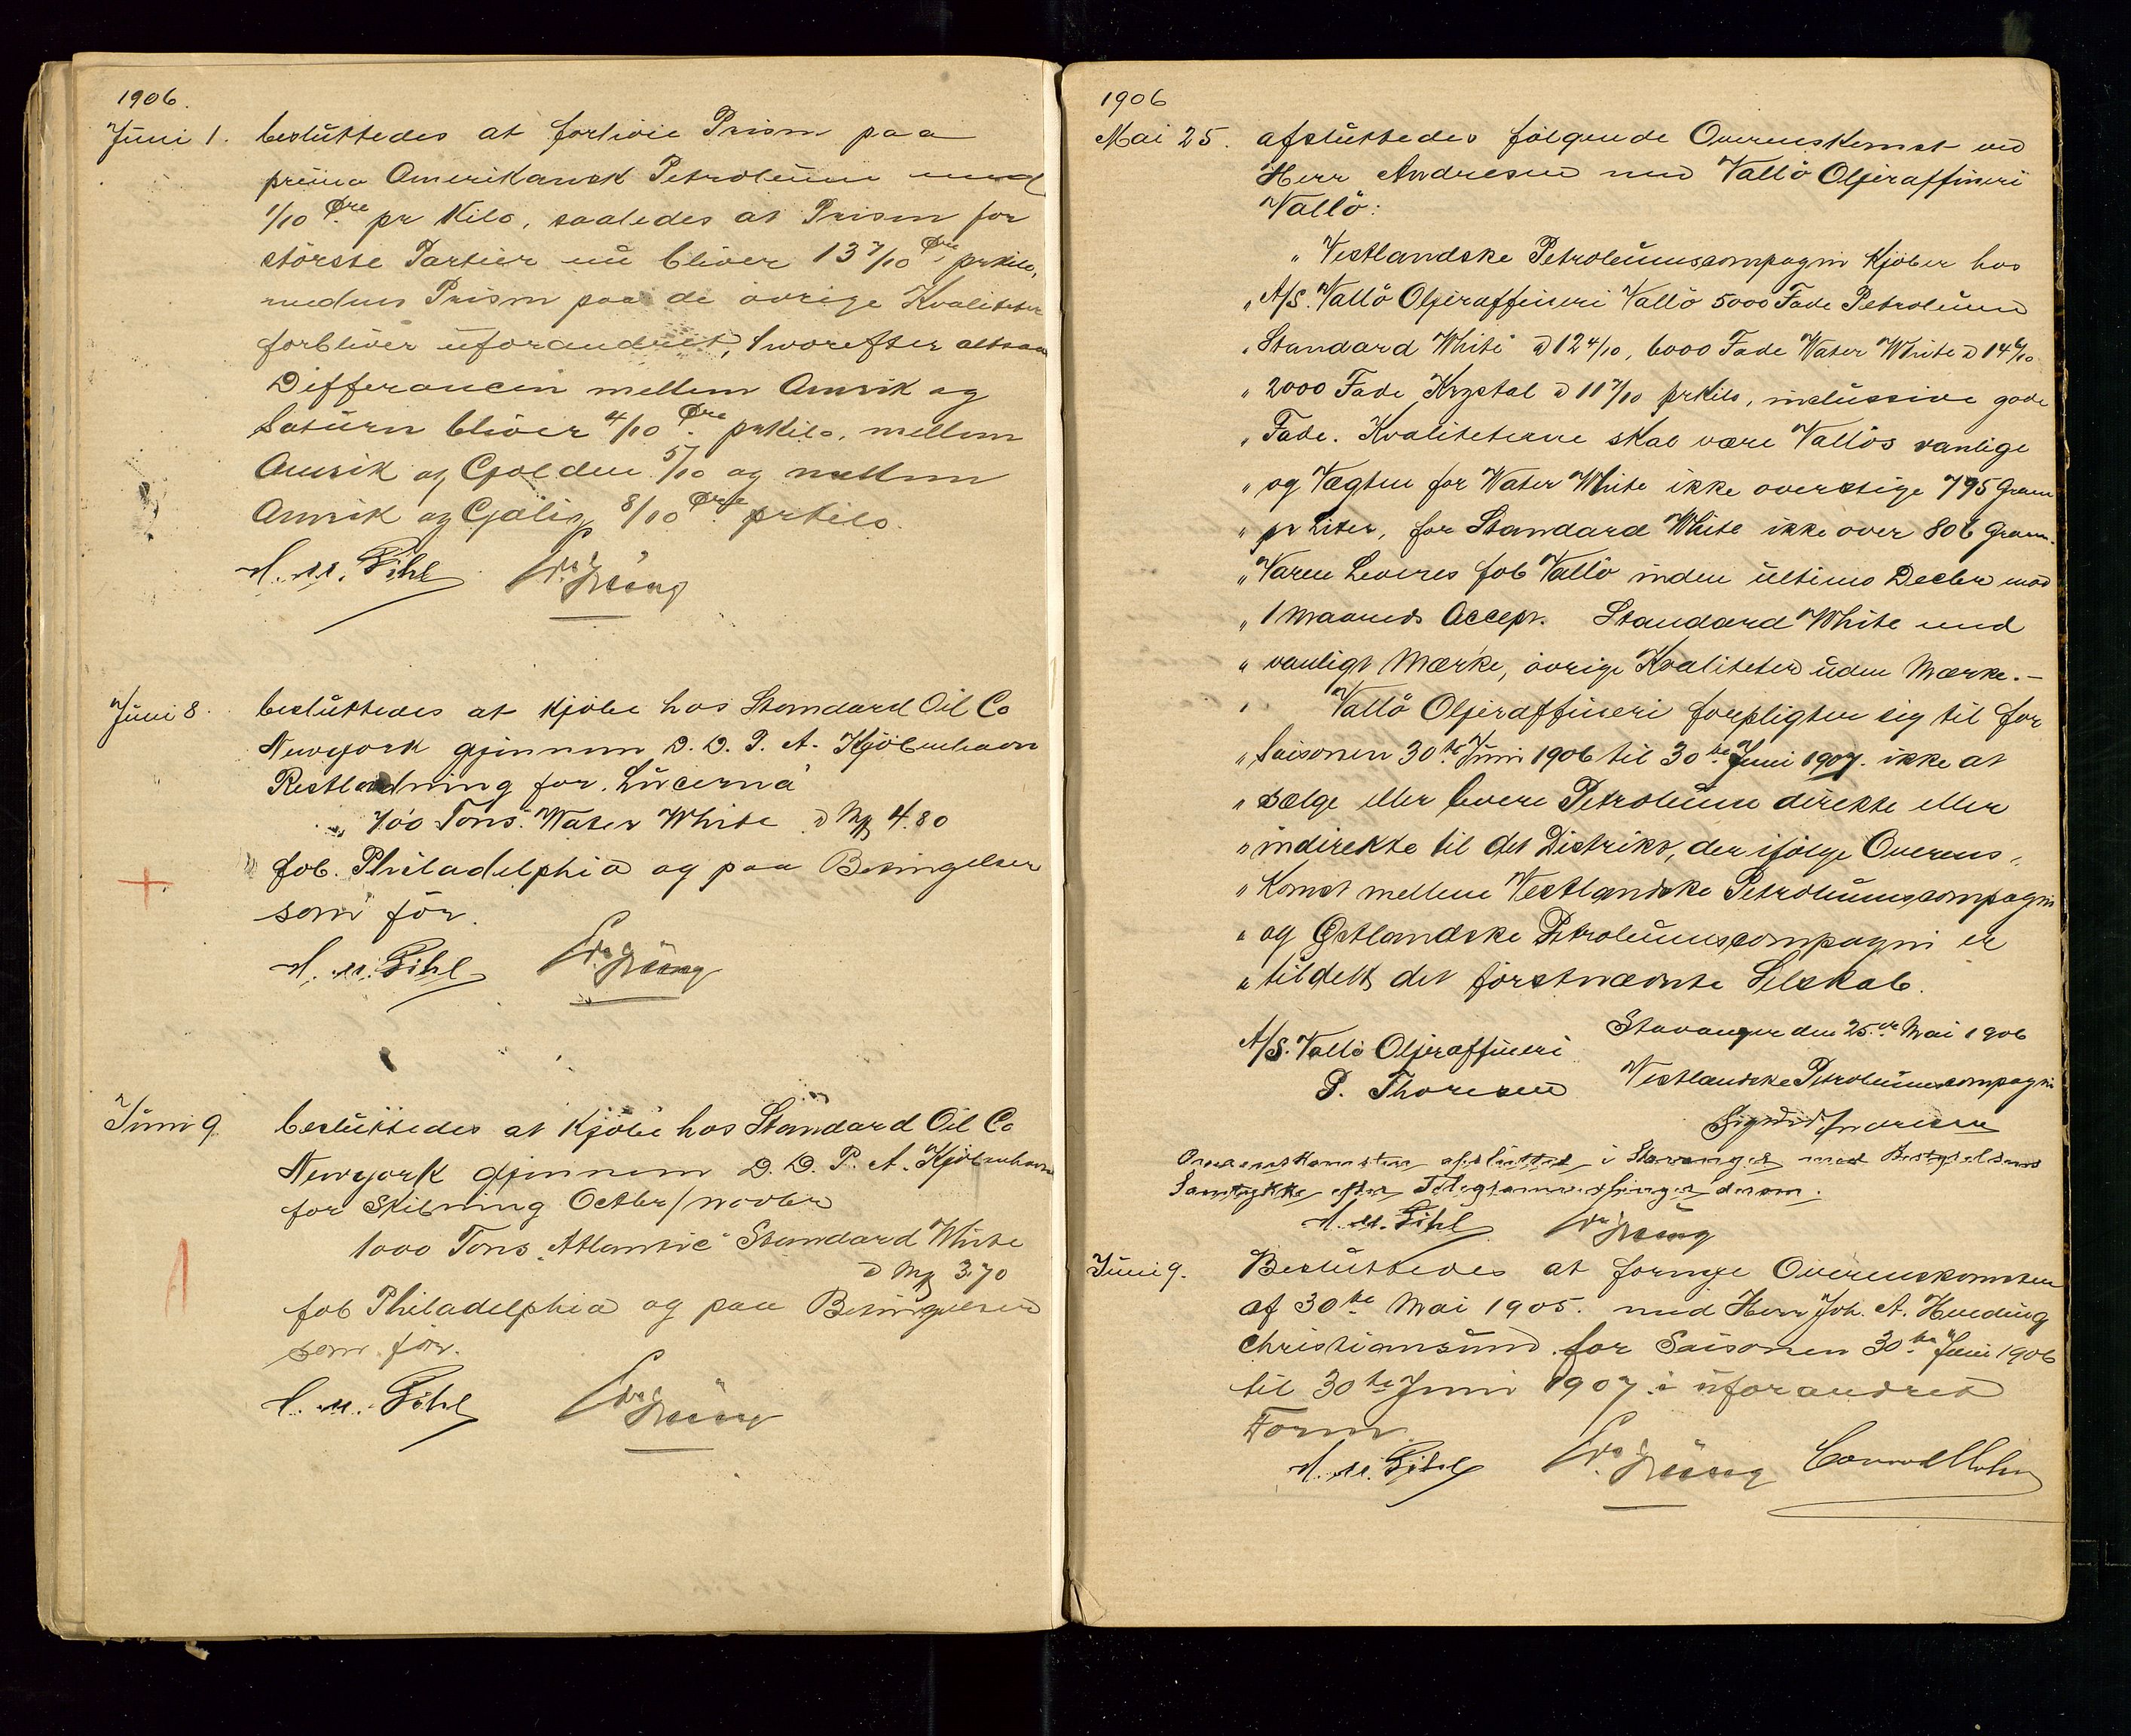 1906.
Juni 1. besluttedes at forhöie Prisen paa
prima Amerikansk Petroleum med
1/10 Øre pr Kilo, saaledes at Prisen for
störste Partier nu bliver 13 7/10 Øre prKilo,
medens Prisen paa de övrige Kvaliteter
forbliver uforandret, hvorefter altsaa
Differancen mellem Amrik og
Saturn bliver 4/10 Øre prKilo, mellem
Amrik og Golden 5/10 og mellem
Amrik og Galig 8/10 Øre prKilo.
H. M. Pihl
Juni 8. besluttedes at kjöbe hos Standard Oil Co
Newyork gjennem D. D. P. A. Kjöbenhavn
Restladning for „Lucerna"
700 Tons Water White à Mk 4.80
fob. Philadelphia og paa Betingelser
som för.
H. M. Pihl
Juni 9 besluttedes at kjöbe hos Standard Oil Co
Newyork gjennem D. D. P. A. Kjöbenhavn
for Skibning Octbr/novbr
1000 Tons „Atlantic" Standard White
à Mk 3.70
fob Philadelphia og paa Betingelser
som för.
H. M. Pihl
1906
Mai 25. afsluttedes fölgende Overenskomst ved
Herr Andresen med Vallö Oljeraffineri
Vallö:
„ Vestlandske Petroleumscompagni kjöber hos
„ A/S. Vallö Oljeraffineri Vallö 5000 Fade Petroleum
„ Standard White à 12 4/10, 6000 Fade Water White à 14 6/10
„ 2000 Fade Krystal à 11 7/10 prKilo, inclussive gode
„ Fade. Kvaliteterne skal være Vallös vanlige
„ og Vægten for Water White ikke overstige 795 Gram
„ pr Liter, for Standard White ikke over 806 Gram.
„ Varen Leveres fob Vallö inden ultimo Decbr mod
„ 1 Maaneds Accept. Standard White med
„ vanligt Mærke, övrige Kvaliteter uden Mærke.-
„ Vallö Oljeraffineri forpligter sig til for
„ Saisonen 30te Juni 1906 til 30te Juni 1907. ikke at
„ sælge eller levere Petroleum direkte eller
„ indirekte til det Distrikt, der ifölge Overens-
„ komst mellem Vestlandske Petroleumscompagni
„ og Østlandske Petroleumscompagni er
„ tildelt det förstnævnte Selskab.
Stavanger den 25de Mai 1906
A/S. Vallö Oljeraffineri
Vestlandske Petroleumscompagni
P. Thoresen
Sigwd Andresen
Overenskomsten afsluttet i Stavanger med Bestyrelsens
Samtykke efter Telegramvexlinger derom.
H. M. Pihl
Juni 9. Besluttedes at fornye Overenskomsten
af 30te Mai 1905. med Herr Joh. A.
Christiansund for Saisonen 30te Juni 1906
til 30te Juni 1907 i uforandret
Form
H. M. Pihl